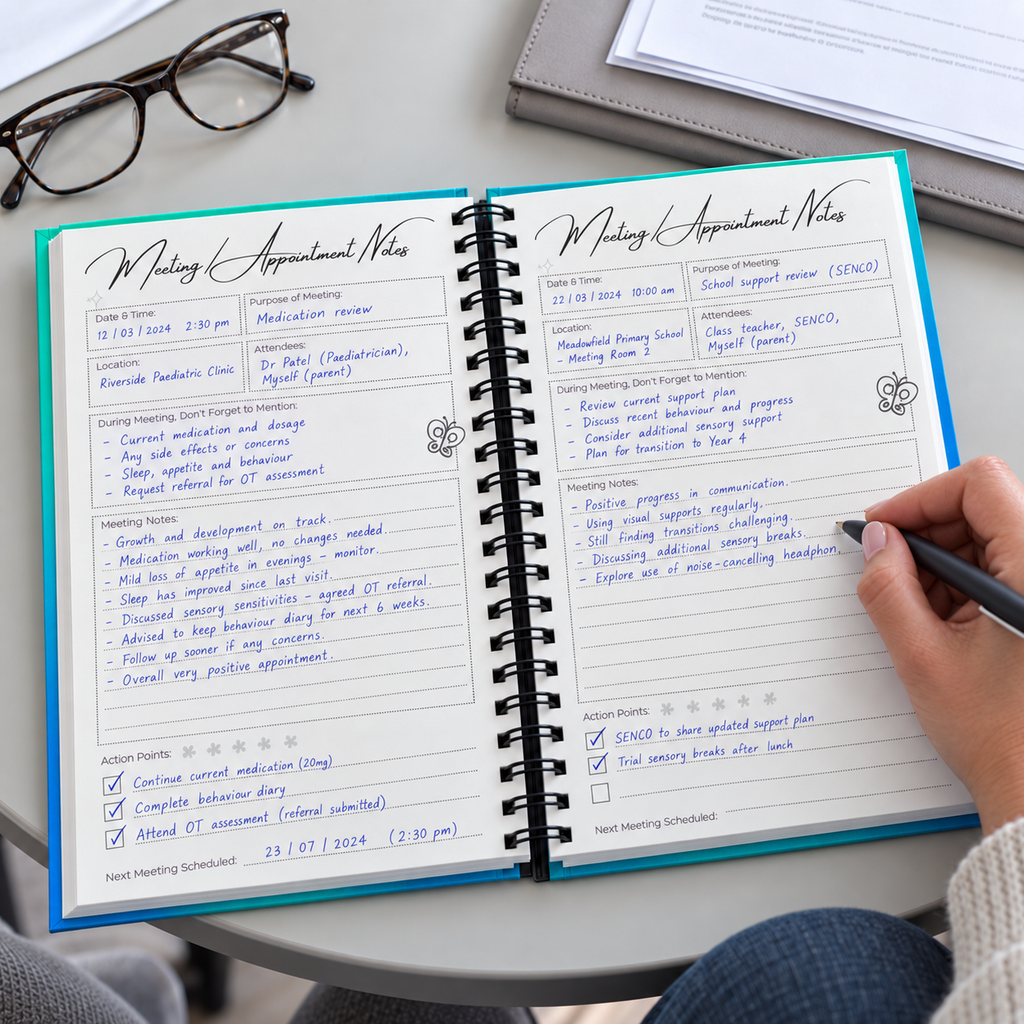 Meeting / Appointment Notes
Date & Time:
12 / 03 / 2024 2:30 pm
Purpose of Meeting:
Medication review
Location:
Riverside Paediatric Clinic
Attendees:
Dr Patel (Paediatrician),
Myself (parent)
During Meeting, Don't Forget to Mention:
- Current medication and dosage
- Any side effects or concerns
- Sleep, appetite and behaviour
- Request referral for OT assessment
Meeting Notes:
- Growth and development on track.
- Medication working well, no changes needed.
- Mild loss of appetite in evenings - monitor.
- Sleep has improved since last visit.
- Discussed sensory sensitivities - agreed OT referral.
- Advised to keep behaviour diary for next 6 weeks.
- Follow up sooner if any concerns.
- Overall very positive appointment.
Action Points:
Continue current medication (20mg)
Complete behaviour diary
Attend OT assessment (referral submitted)
Next Meeting Scheduled: 23 / 07 / 2024 (2:30 pm)
Meeting / Appointment Notes
Date & Time:
22 / 03 / 2024 10:00 am
Purpose of Meeting:
School support review (SENCO)
Location:
Meadowfield Primary School
- Meeting Room 2
Attendees:
Class teacher, SENCO,
Myself (parent)
During Meeting, Don't Forget to Mention:
- Review current support plan
- Discuss recent behaviour and progress
- Consider additional sensory support
- Plan for transition to Year 4
Meeting Notes:
- Positive progress in communication.
- Using visual supports regularly.
- Still finding transitions challenging.
- Discussing additional sensory breaks.
- Explore use of noise-cancelling headphon
Action Points:
SENCO to share updated support plan
Trial sensory breaks after lunch
Next Meeting Scheduled: